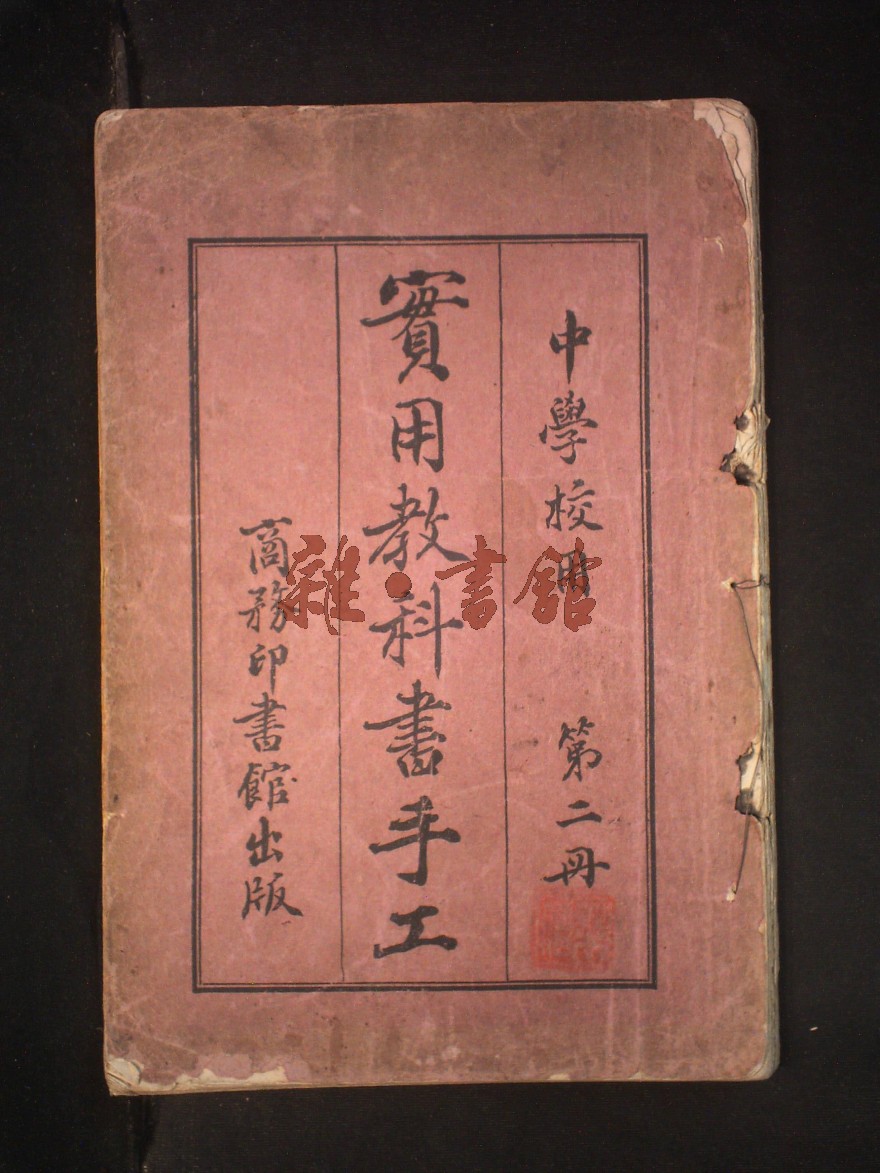 中學校用 第二冊
實用教科書手工
商務印書館出版
雜·書館